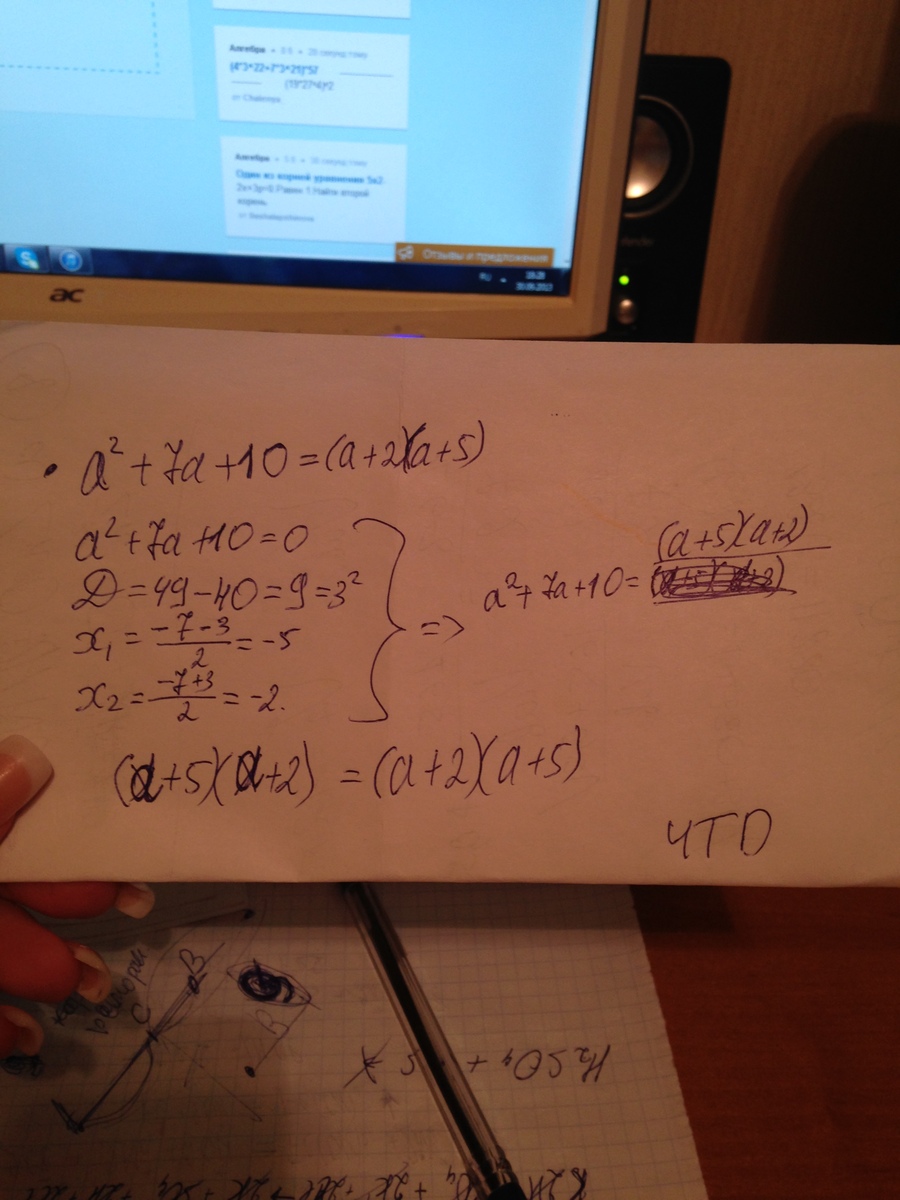 Алгебра • 5-9 • 29 секунд тому
(4*3^22+7*3^21)*57
(19*27^4)^2
от Chainnya
Алгебра • 5-9 • 56 секунд тому
Один из корней уравнения 5x2-
2x+3p=0 Равен 1 Найти второй
корень.
Отзывы и предложения
ac
• a² + 7a + 10 = (a+2)(a+5)
a² + 7a + 10 = 0
D = 49 - 40 = 9 = 3²
x₁ = (-7-3)/2 = -5
x₂ = (-7+3)/2 = -2.
=> a² + 7a + 10 = (a+5)(a+2)
(a+5)(a+2) = (a+2)(a+5)
ЧТD
C
B
B
H₂SO₄ +